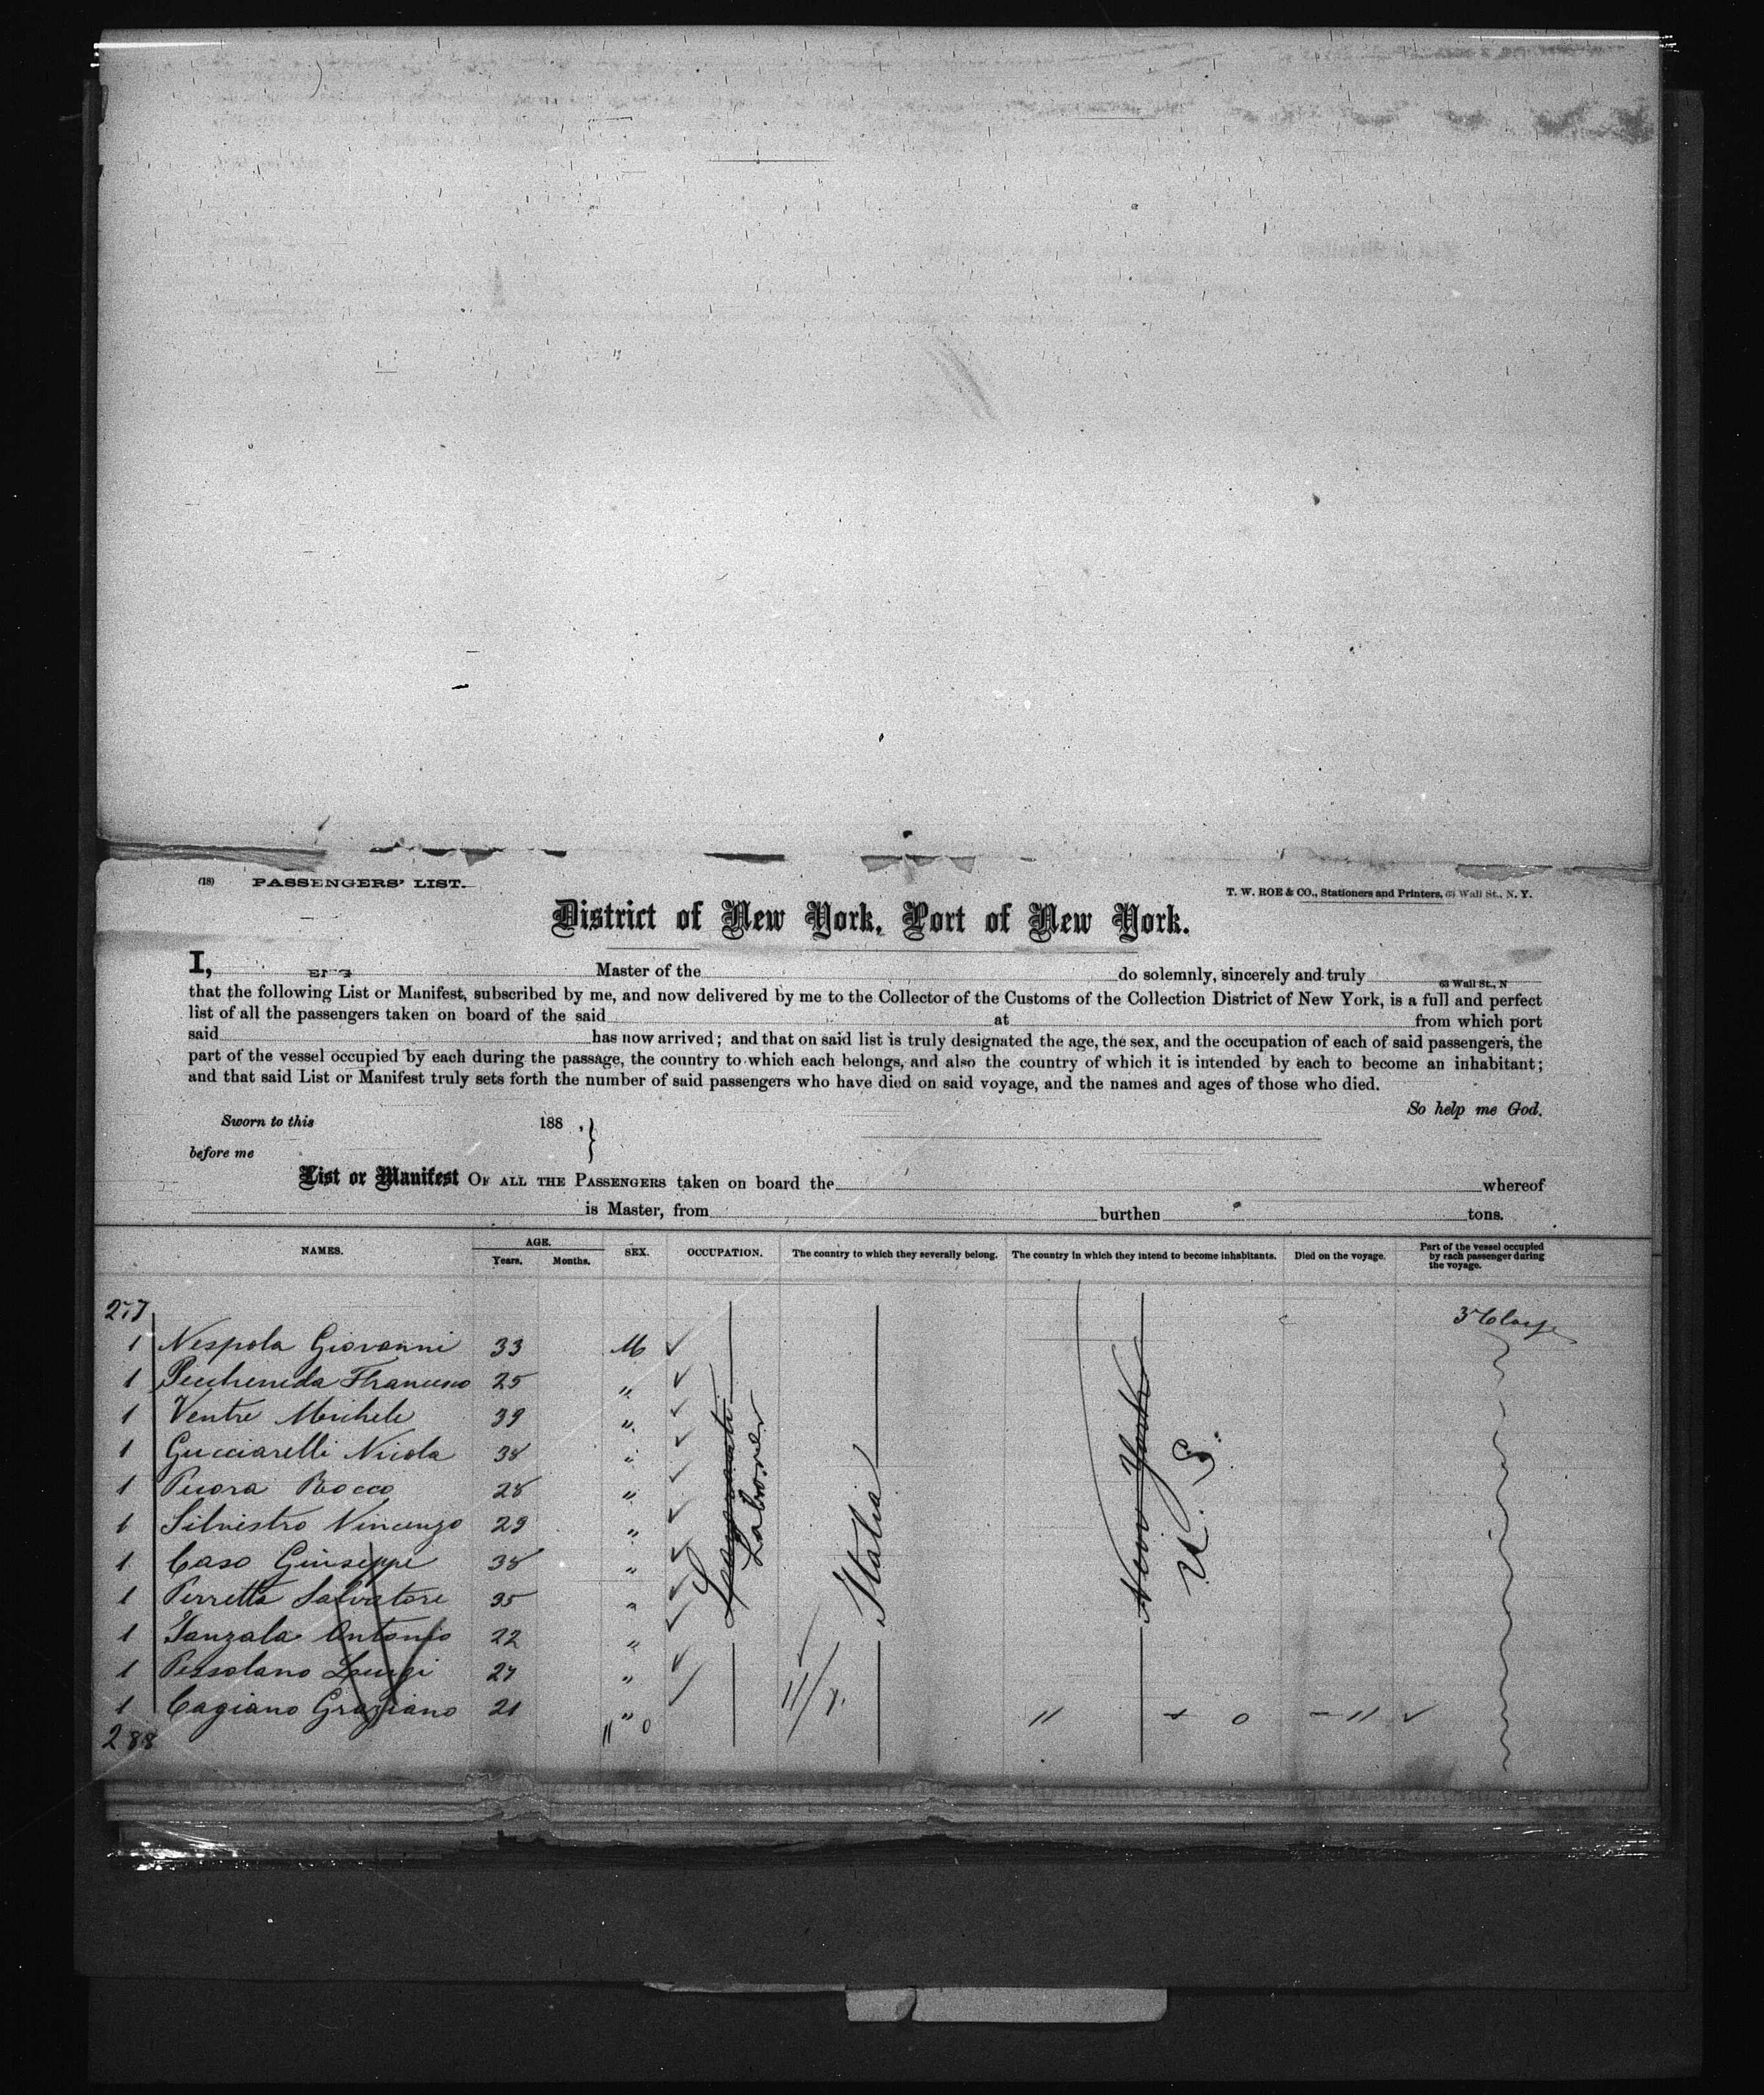 (18) PASSENGERS' LIST.
T. W. ROE & CO., Stationers and Printers, 63 Wall St., N. Y.
District of New York, Port of New York.
I, Master of the do solemnly, sincerely and truly
63 Wall St., N
that the following List or Manifest, subscribed by me, and now delivered by me to the Collector of the Customs of the Collection District of New York, is a full and perfect
list of all the passengers taken on board of the said at from which port
said has now arrived; and that on said list is truly designated the age, the sex, and the occupation of each of said passengers, the
part of the vessel occupied by each during the passage, the country to which each belongs, and also the country of which it is intended by each to become an inhabitant;
and that said List or Manifest truly sets forth the number of said passengers who have died on said voyage, and the names and ages of those who died.
So help me God.
Sworn to this 188 ,
before me
List or Manifest OF ALL THE PASSENGERS taken on board the whereof
is Master, from burthen tons.
NAMES. AGE. SEX. OCCUPATION. The country to which they severally belong. The country in which they intend to become inhabitants. Died on the voyage. Part of the vessel occupied by each passenger during the voyage.
Years. Months.
277
1 Nespola Giovanni 33 M
1 Francesco 25 "
1 Ventre Michele 39 "
1 Gucciarelli Nicola 38 "
1 Pecora Rocco 28 "
1 Silvistro Vincenzo 29 "
1 Caso Giuseppe 38 "
1 Perretta Salvatore 35 "
1 Antonio 22 "
1 Pessolano Luigi 27 "
1 Cagiano Graziano 21 "
288
Laborer
Italia
New York
U. S.